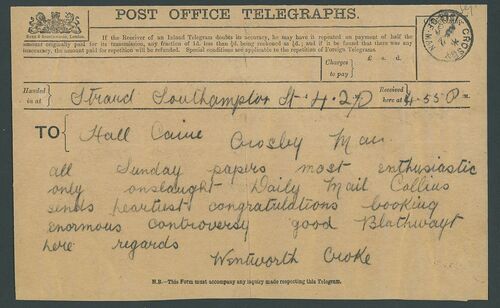 POST OFFICE TELEGRAPHS.
If the Receiver of an Inland Telegram doubts its accuracy, he may have it repeated on payment of half the
amount originally paid for its transmission, any fraction of 1d. less than ½d. being reckoned as ½d.; and if it be found that there was any
inaccuracy, the amount paid for repetition will be refunded. Special conditions are applicable to the repetition of Foreign Telegrams.
Charges
to pay
£ s. d.
Handed
in at
Strand Southampton St. 4.27P
Received
here at
4.55P
TO
Hall Caine
Crosby Man
all Sunday papers most enthusiastic
only onslaught Daily Mail Collins
sends heartiest congratulations booking
enormous controversy good Blathwayt
here regards
Wentworth Croke
N.B.—This Form must accompany any inquiry made respecting this Telegram.